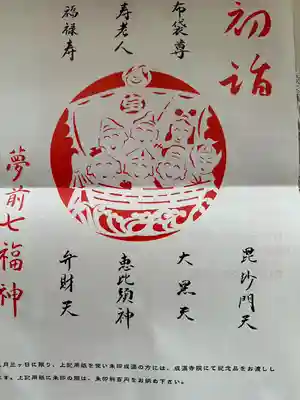 初詣
布袋尊
寿老人
福禄寿
夢前七福神
毘沙門天
大黒天
恵比須神
弁財天
月三ヶ日に限り、上記用紙を使い朱印成満の方には、成満寺院にて記念品をお渡しし
ます。上記用紙に朱印の際は、朱印料百円をお納め下さい。